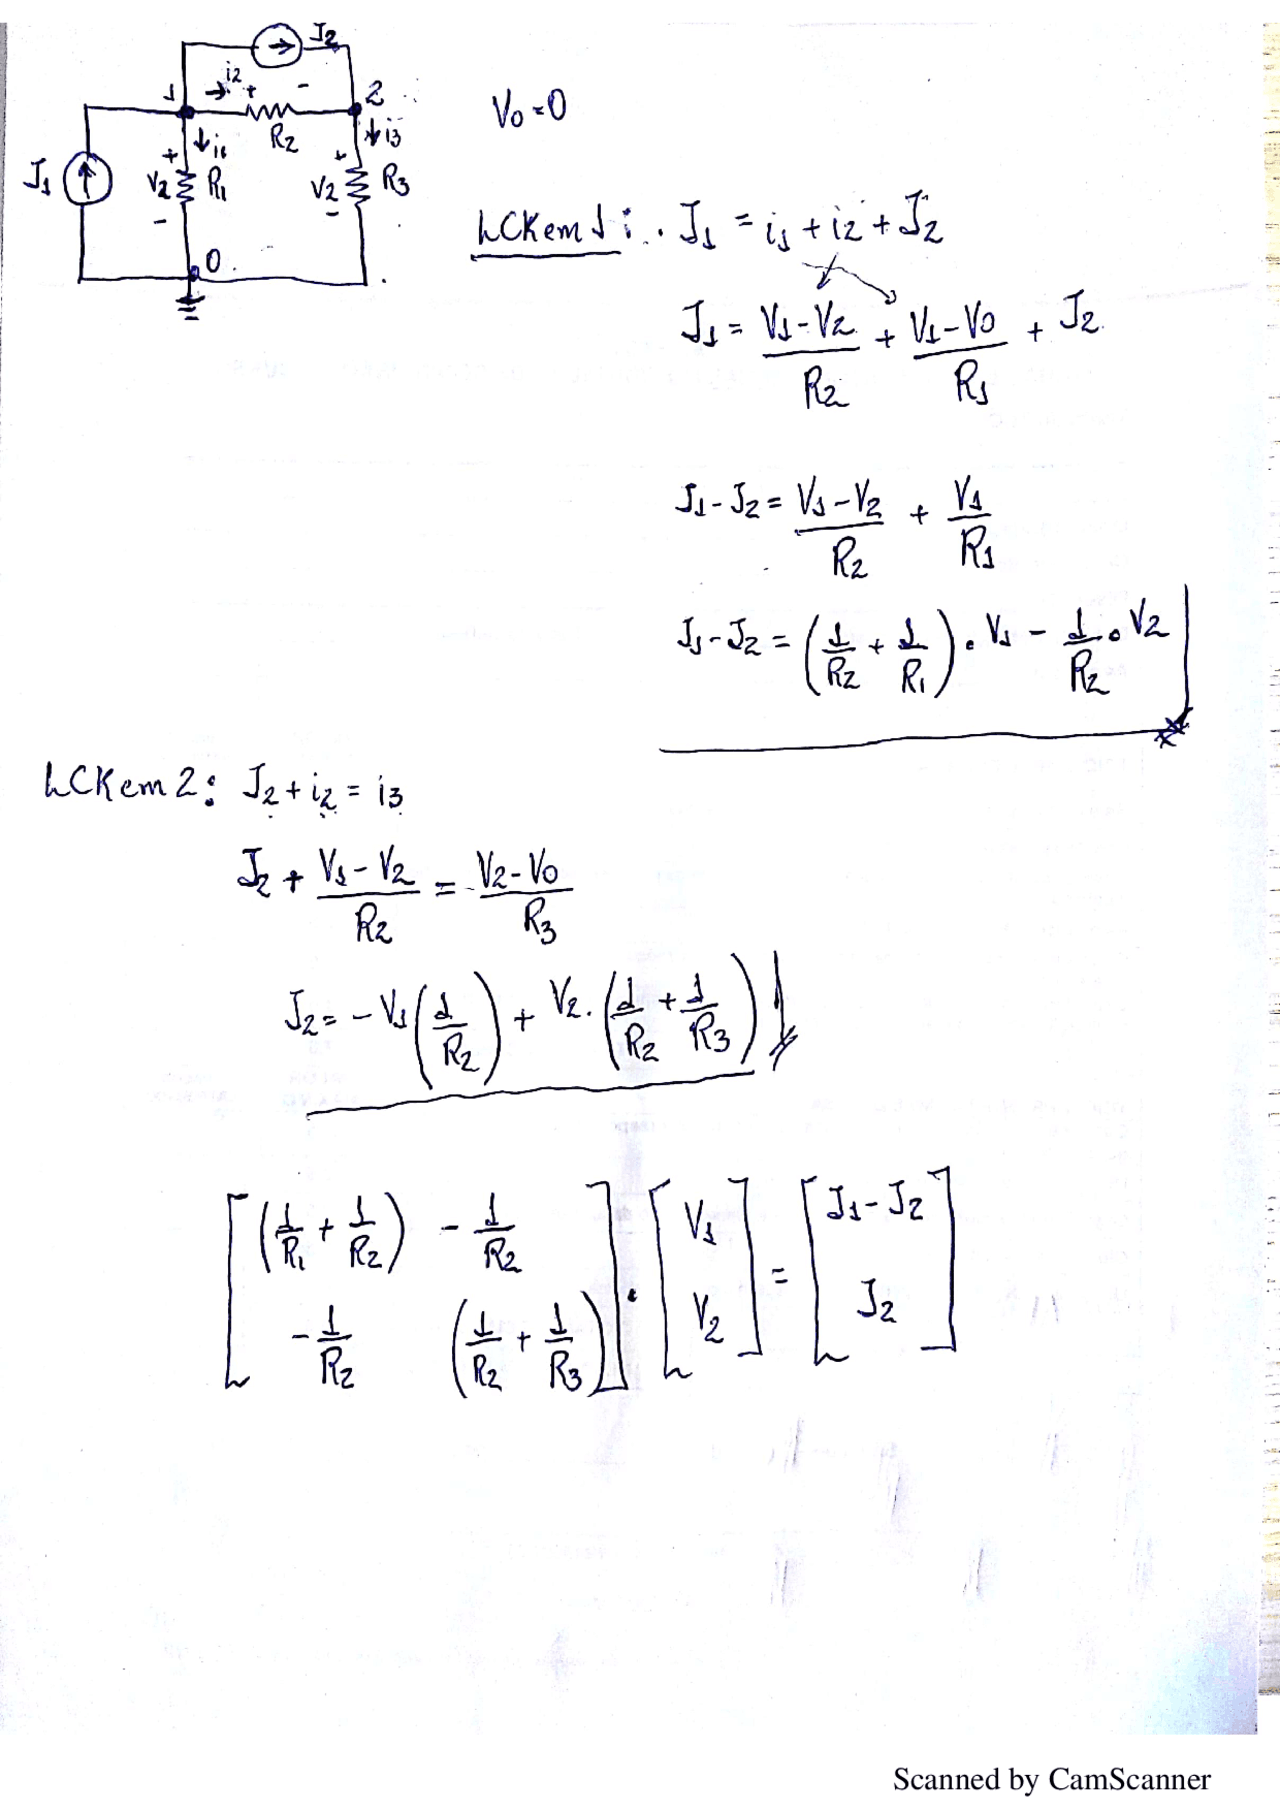 J2
i2
+ -
1 2
R2
i1 i3
+ +
J1 V2 R1 V2 R3
- -
0
V0 = 0
LCK em 1: J1 = i1 + i2 + J2
J1 = (V1 - V2)/R2 + (V1 - V0)/R1 + J2
J1 - J2 = (V1 - V2)/R2 + V1/R1
J1 - J2 = (1/R2 + 1/R1) . V1 - 1/R2 . V2
LCK em 2: J2 + i2 = i3
J2 + (V1 - V2)/R2 = (V2 - V0)/R3
J2 = - V1 (1/R2) + V2 . (1/R2 + 1/R3)
[(1/R1 + 1/R2) - 1/R2] . [V1] = [J1 - J2]
[- 1/R2 (1/R2 + 1/R3)] [V2] [J2]
Scanned by CamScanner